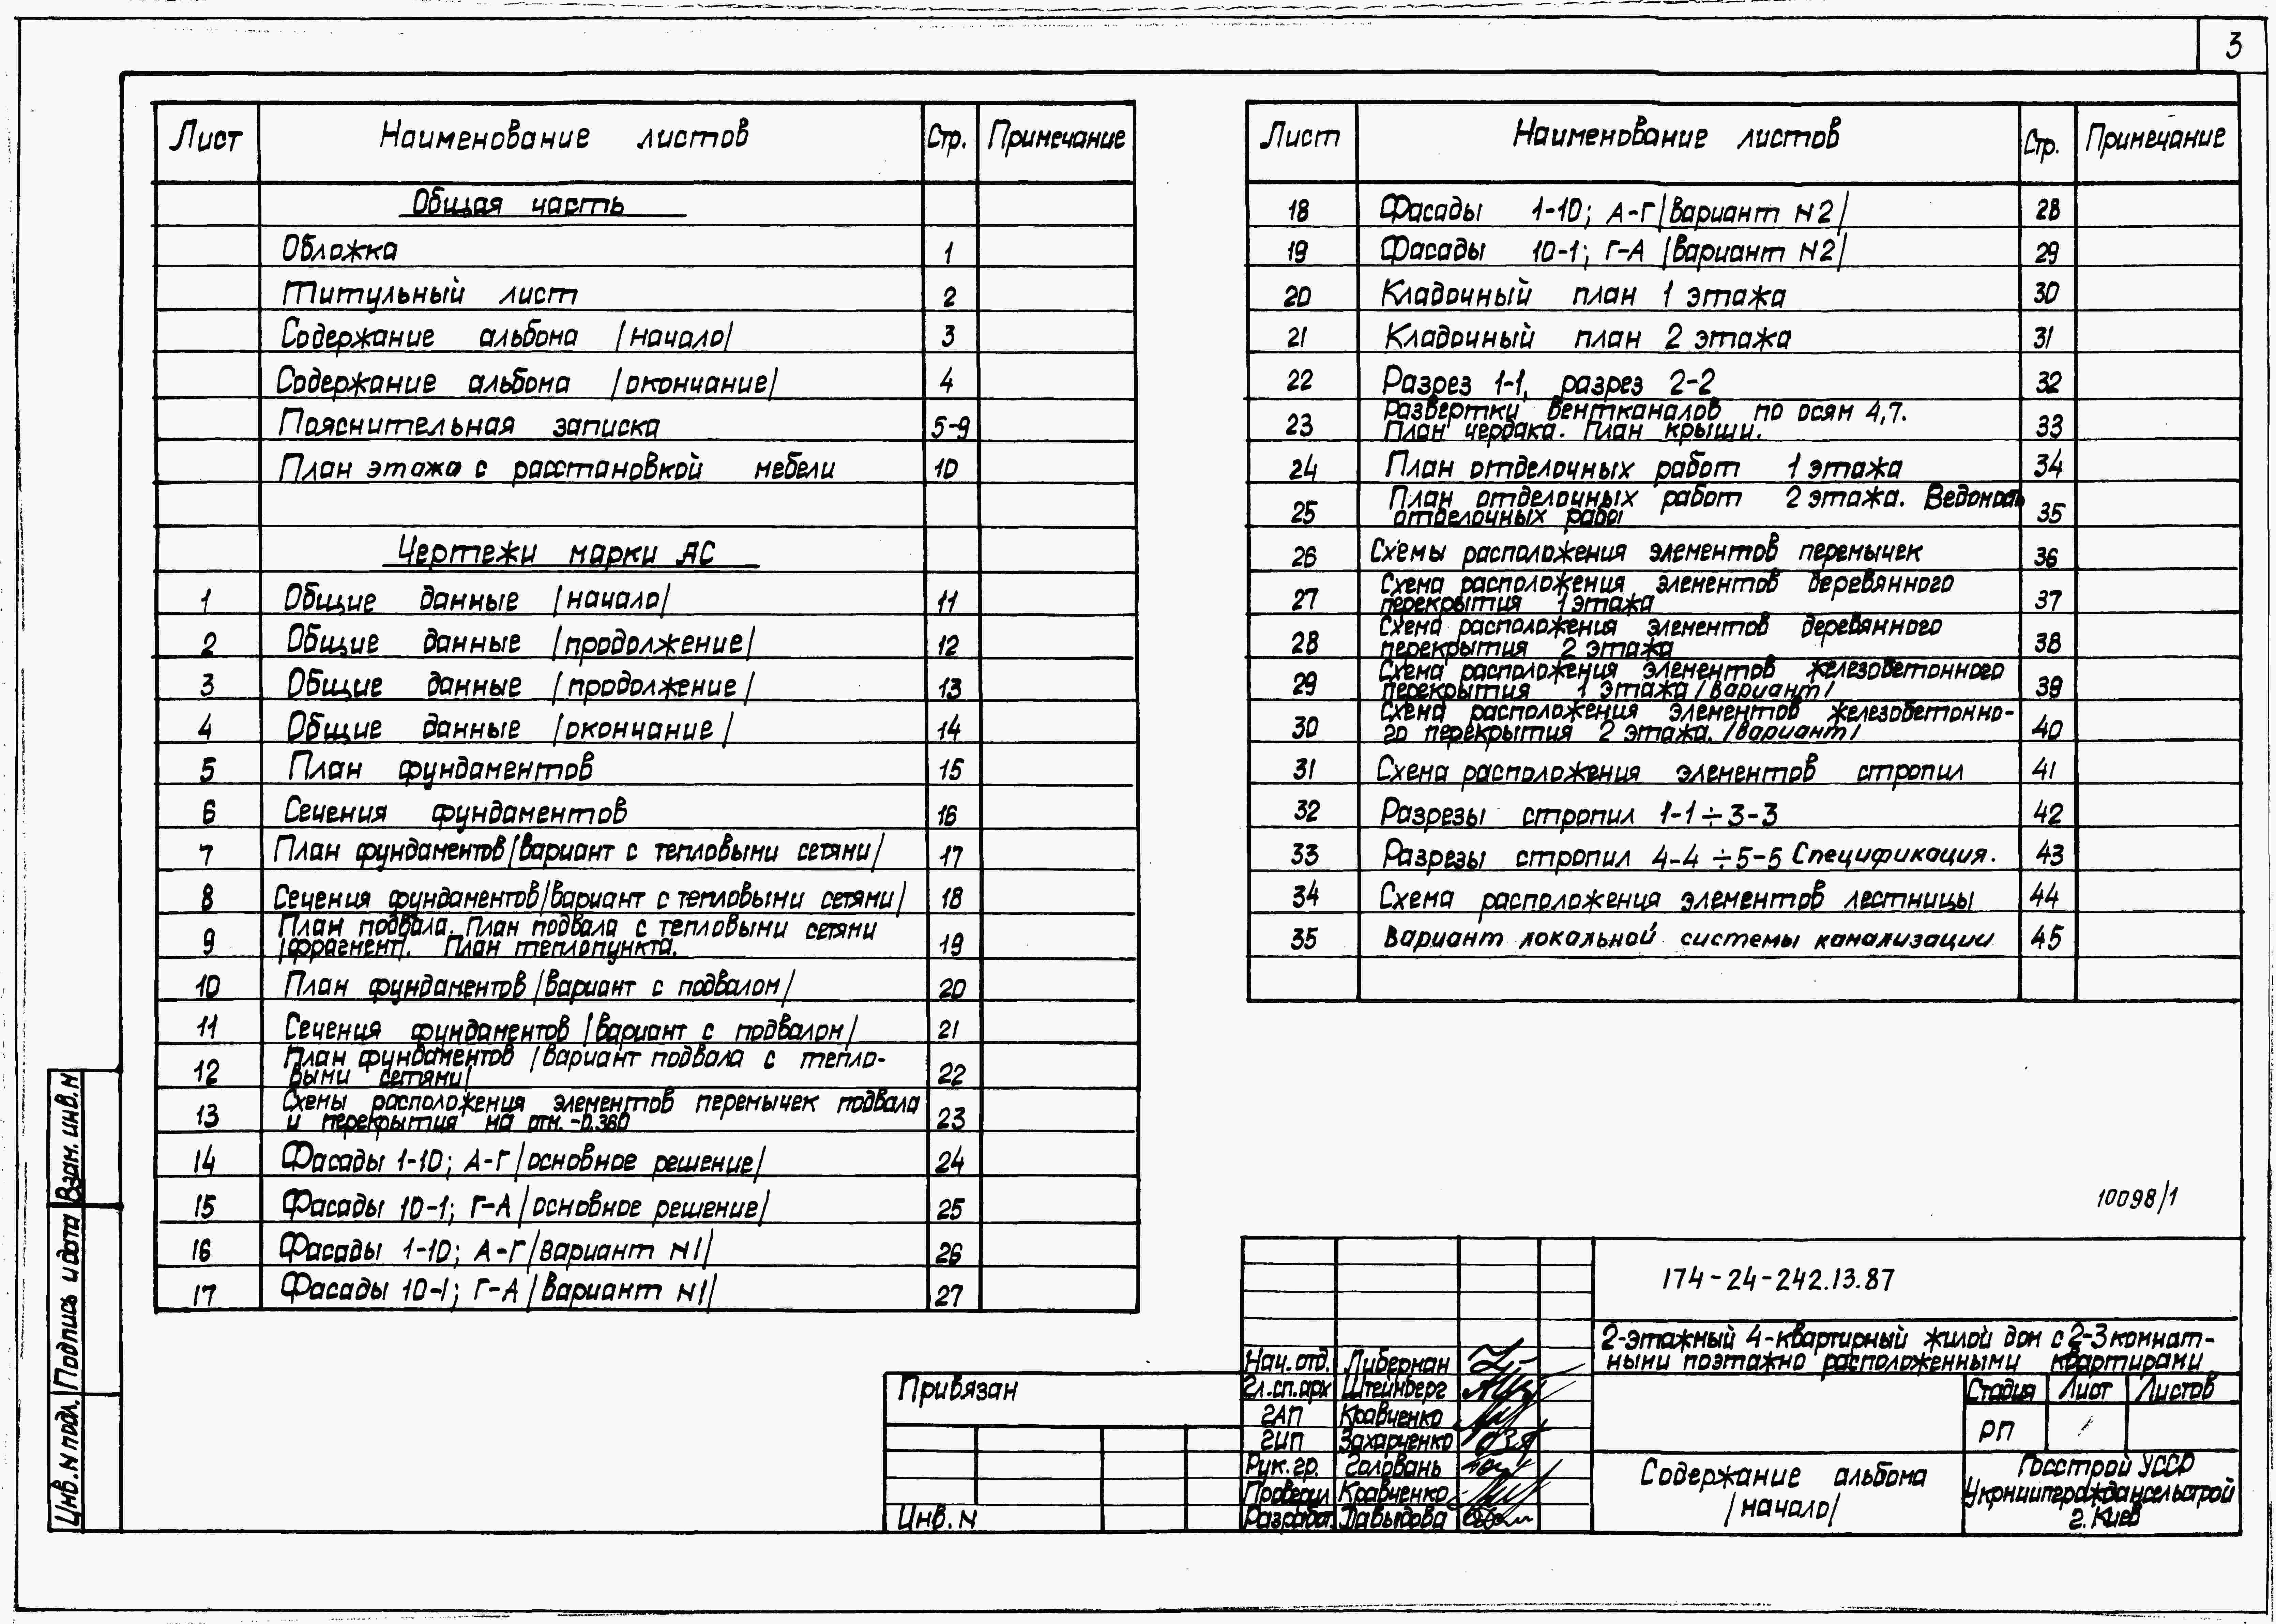 3
Лист Наименование листов Стр. Примечание
Общая часть
Обложка 1
Титульный лист 2
Содержание альбома /начало/ 3
Содержание альбома /окончание/ 4
Пояснительная записка 5-9
План этажа с расстановкой мебели 10
Чертежи марки АС
1 Общие данные /начало/ 11
2 Общие данные /продолжение/ 12
3 Общие данные /продолжение/ 13
4 Общие данные /окончание/ 14
5 План фундаментов 15
6 Сечения фундаментов 16
7 План фундаментов /вариант с тепловыми сетями/ 17
8 Сечения фундаментов /вариант с тепловыми сетями/ 18
9 План подвала. План подвала с тепловыми сетями
/фрагмент/. План теплопункта. 19
10 План фундаментов /вариант с подвалом/ 20
11 Сечения фундаментов /вариант с подвалом/ 21
12 План фундаментов /вариант подвала с тепло-
выми сетями/ 22
13 Схемы расположения элементов перемычек подвала
и перекрытия на отм. -0.360 23
14 Фасады 1-10; А-Г /основное решение/ 24
15 Фасады 10-1; Г-А /основное решение/ 25
16 Фасады 1-10; А-Г /вариант N1/ 26
17 Фасады 10-1; Г-А /вариант N1/ 27
Лист Наименование листов Стр. Примечание
18 Фасады 1-10; А-Г /вариант N2/ 28
19 Фасады 10-1; Г-А /вариант N2/ 29
20 Кладочный план 1 этажа 30
21 Кладочный план 2 этажа 31
22 Разрез 1-1, разрез 2-2 32
23 Развертки вентканалов по осям 4,7.
План чердака. План крыши. 33
24 План отделочных работ 1 этажа 34
25 План отделочных работ 2 этажа. Ведомость
отделочных работ 35
26 Схемы расположения элементов перемычек 36
27 Схема расположения элементов деревянного
перекрытия 1 этажа 37
28 Схема расположения элементов деревянного
перекрытия 2 этажа 38
29 Схема расположения элементов железобетонного
перекрытия 1 этажа /вариант/ 39
30 Схема расположения элементов железобетонно-
го перекрытия 2 этажа. /вариант/ 40
31 Схема расположения элементов стропил 41
32 Разрезы стропил 1-1÷3-3 42
33 Разрезы стропил 4-4÷5-5 Спецификация. 43
34 Схема расположения элементов лестницы 44
35 Вариант локальной системы канализации 45
10098/1
174-24-242.13.87
2-этажный 4-квартирный жилой дом с 2-3 комнат-
ными поэтажно расположенными квартирами
Нач. отд. Либерман
Гл.сп.арх Штейнберг
ГАП Кравченко
ГИП Захарченко
Рук. гр. Головань
Проверил Кравченко
Разработ. Давыдова
Стадия Лист Листов
РП
Содержание альбома
/начало/
Госстрой УССР
Укрниипграждансельстрой
г. Киев
Привязан
Инв. N
Инв. N подл. Подпись и дата Взам. инв. N